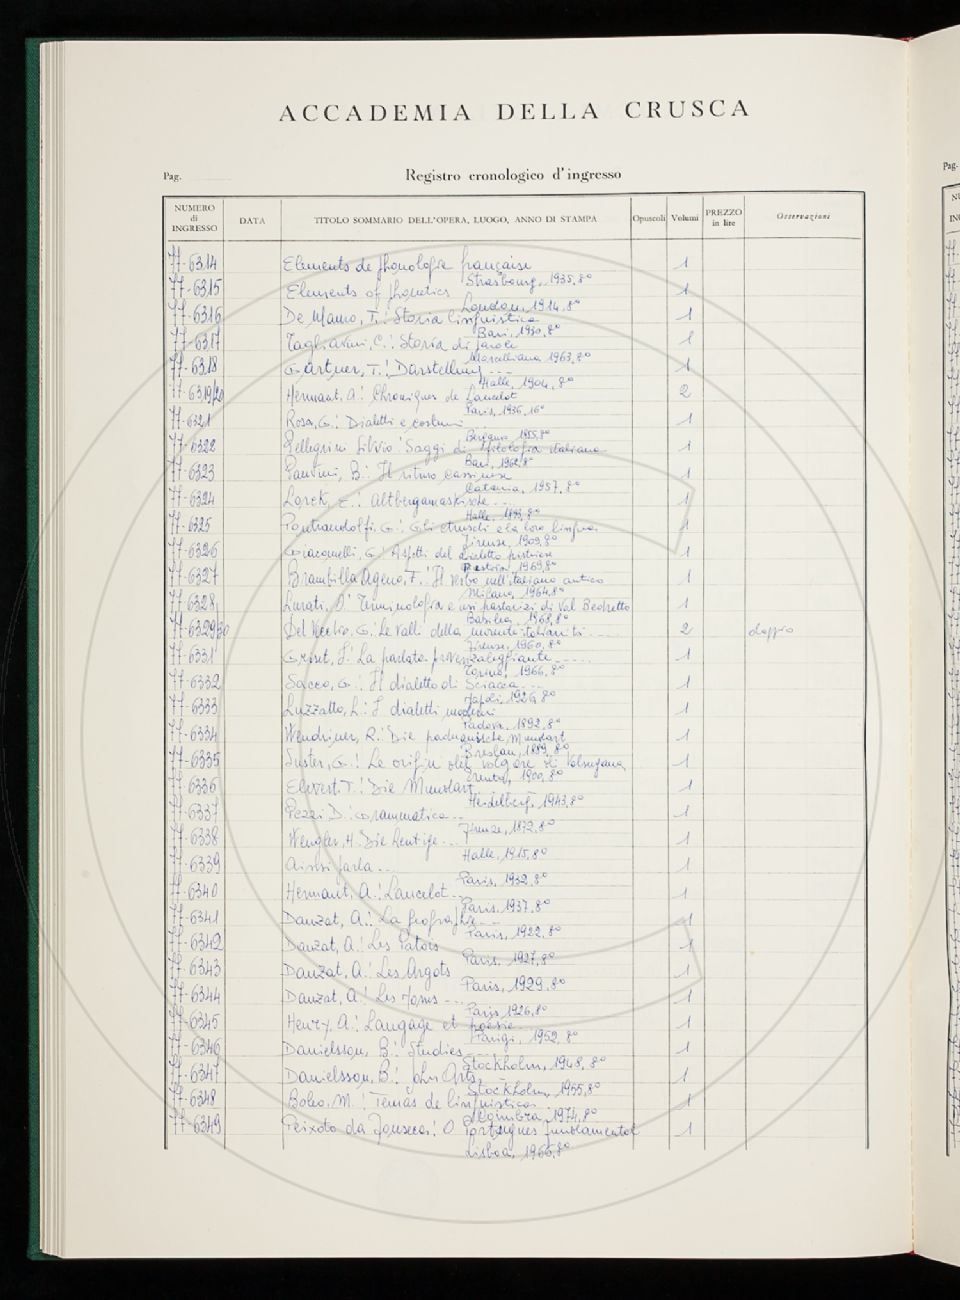 ACCADEMIA DELLA CRUSCA
Pag.
Registro cronologico d'ingresso
Pag.
NUMERO di INGRESSO DATA TITOLO SOMMARIO DELL'OPERA, LUOGO, ANNO DI STAMPA Opuscoli Volumi PREZZO in lire Osservazioni
77-6314 Elements de phonologie française 1
Strasbourg, 1935, 8º
77-6315 Elements of phonetics 1
London, 1914, 8º
77-6316 De Mauro, T.: Storia linguistica 1
Bari, 1970, 8º
77-6317 Tagliavini, C.: Storia di parole
Morcelliana 1963, 8º
77-6318 Gartner, T.: Darstellung --- 1
Halle, 1904, 8º
77-6319/20 Hermant, A.: Chroniques de Lancelot 2
Paris, 1936, 16º
77-6321 Rosa, G.: Dialetti e costumi 1
Bergamo, 1855, 8º
77-6322 Pellegrini Silvio: Saggi di filologia italiana 1
Bari, 1962, 8º
77-6323 Panvini, B.: Il ritmo cassinese 1
Catania, 1957, 8º
77-6324 Lorck, E.: Altbergamaskische --- 1
Halle, 1893, 8º
77-6325 Pontrandolfi, G.: Gli etruschi e la loro lingua 1
Firenze, 1909, 8º
77-6326 Giacomelli, G.: Aspetti del dialetto pistoiese 1
Pistoia, 1969, 8º
77-6327 Brambilla Ageno, F.: Il verbo nell'italiano antico 1
Milano, 1964, 8º
77-6328 Lurati, O. Terminologia e usi pastorizi di Val Bedretto 1
Basilea, 1968, 8º
77-6329/30 Del Vecchio, G.: Le valli della 2 doppio
Firenze, 1960, 8º
77-6331 Griset, I.: La parlata provenzaleggiante --- 1
Torino, 1966, 8º
77-6332 Sacco, G.: Il dialetto di Sciacca --- 1
Napoli, 1926, 8º
77-6333 Luzzatto, L.: I dialetti moderni 1
Padova, 1892, 8º
77-6334 Wendriner, R.: Die paduanische Mundart 1
Breslau, 1889, 8º
77-6335 Suster, G.: Le origini del volgare di Valsugana 1
Trento, 1900, 8º
77-6336 Elwert, T.: Die Mundart 1
Heidelberg, 1943, 8º
77-6337 Pezzi D.: Grammatica --- 1
Firenze, 1872, 8º
77-6338 Wengler, H. Die heutige --- 1
Halle, 1915, 8º
77-6339 Ainsi parla --- 1
Paris, 1932, 8º
77-6340 Hermant, A.: Lancelot --- 1
Paris, 1937, 8º
77-6341 Dauzat, A.: La géographie --- 1
Paris, 1922, 8º
77-6342 Dauzat, A.: Les Patois 1
Paris, 1927, 8º
77-6343 Dauzat, A.: Les Argots 1
Paris, 1929, 8º
77-6344 Dauzat, A.: Les noms --- 1
Paris 1926, 8º
77-6345 Henry, A.: Langage et poésie --- 1
Parigi, 1952, 8º
77-6346 Danielsson, B.: Studies --- 1
Stockholm, 1948, 8º
77-6347 Danielsson, B.: John 1
Stockholm, 1955, 8º
77-6348 Boleo, M.: Temas de linguistica 1
Coimbra, 1974, 8º
77-6349 Peixoto da Fonseca: O Portugues fundamental 1
Lisboa, 1966, 8º